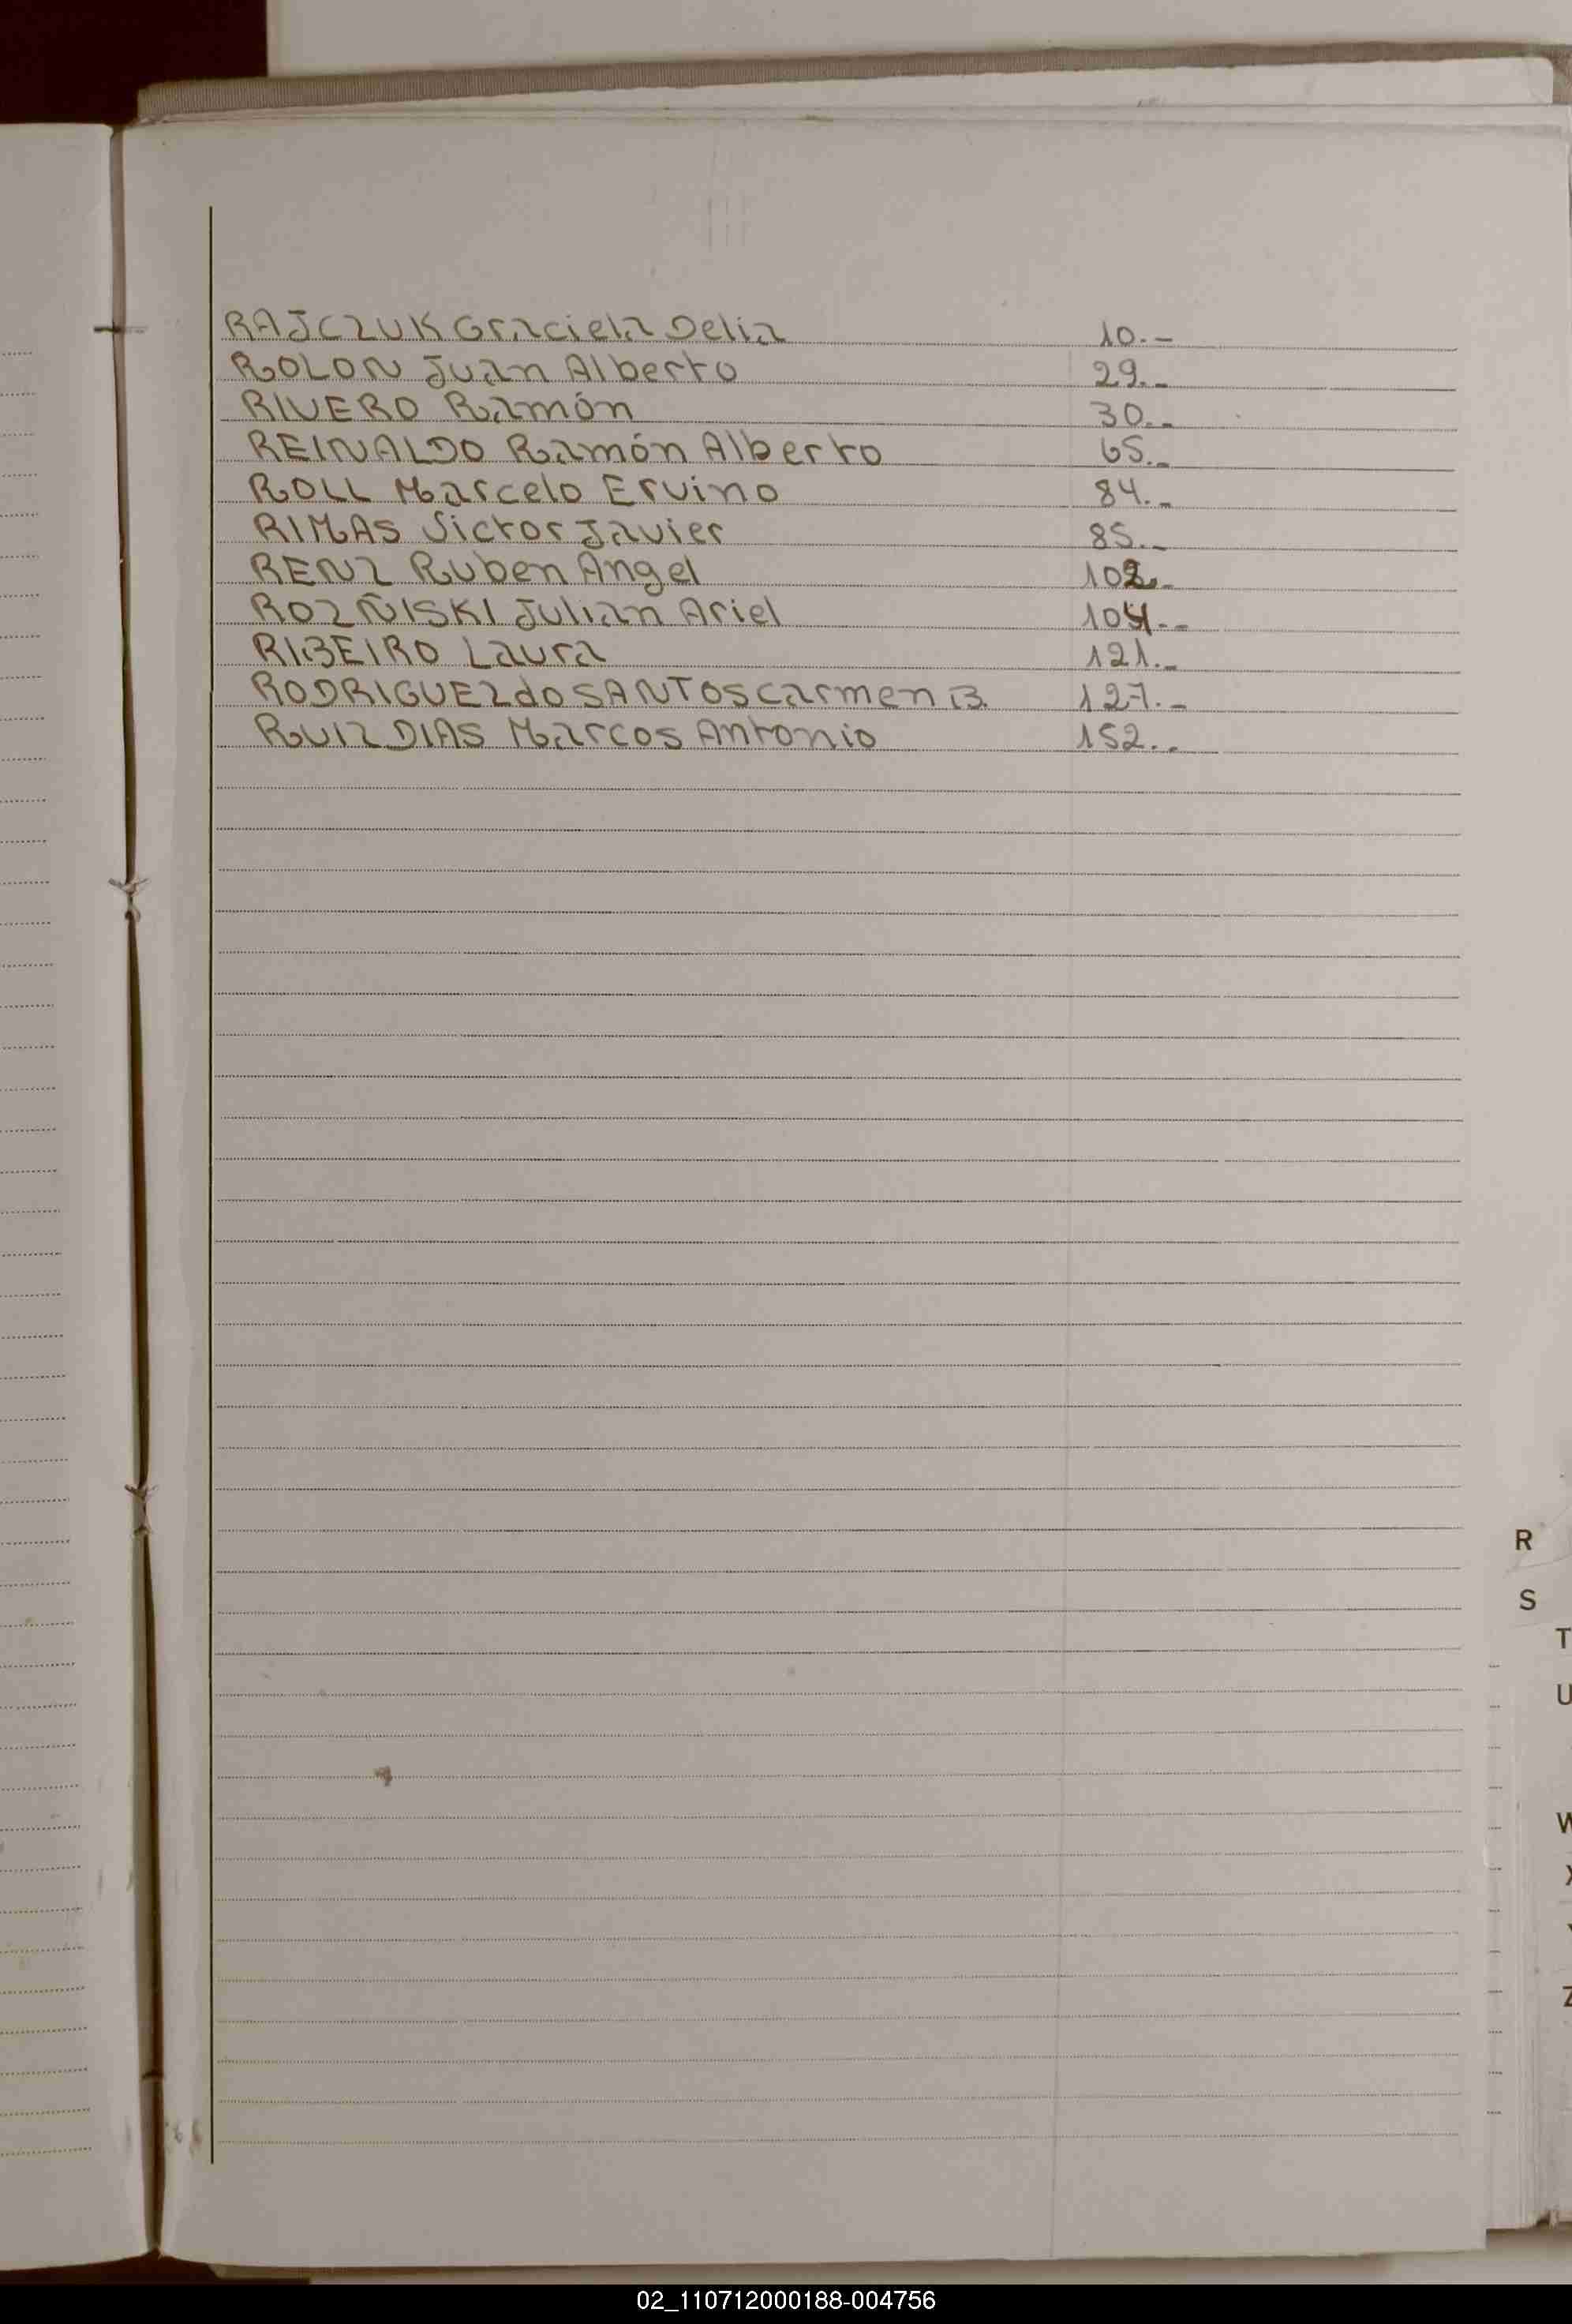 RAJCZUK Graciela Delia 10.-
ROLON Juan Alberto 29.-
RIVERO Ramón 30.-
REINALDO Ramón Alberto 65.-
ROLL Marcelo Ervino 84.-
RIMAS Victor Javier 85.-
RENZ Ruben Angel 102.-
ROZÑISKI Julian Ariel 104.-
RIBEIRO Laura 121.-
RODRIGUEZ do SANTOS Carmen B. 127.-
RUIZ DIAS Marcos Antonio 152.-
R
S
T
U
W
X
Y
Z
02_110712000188-004756